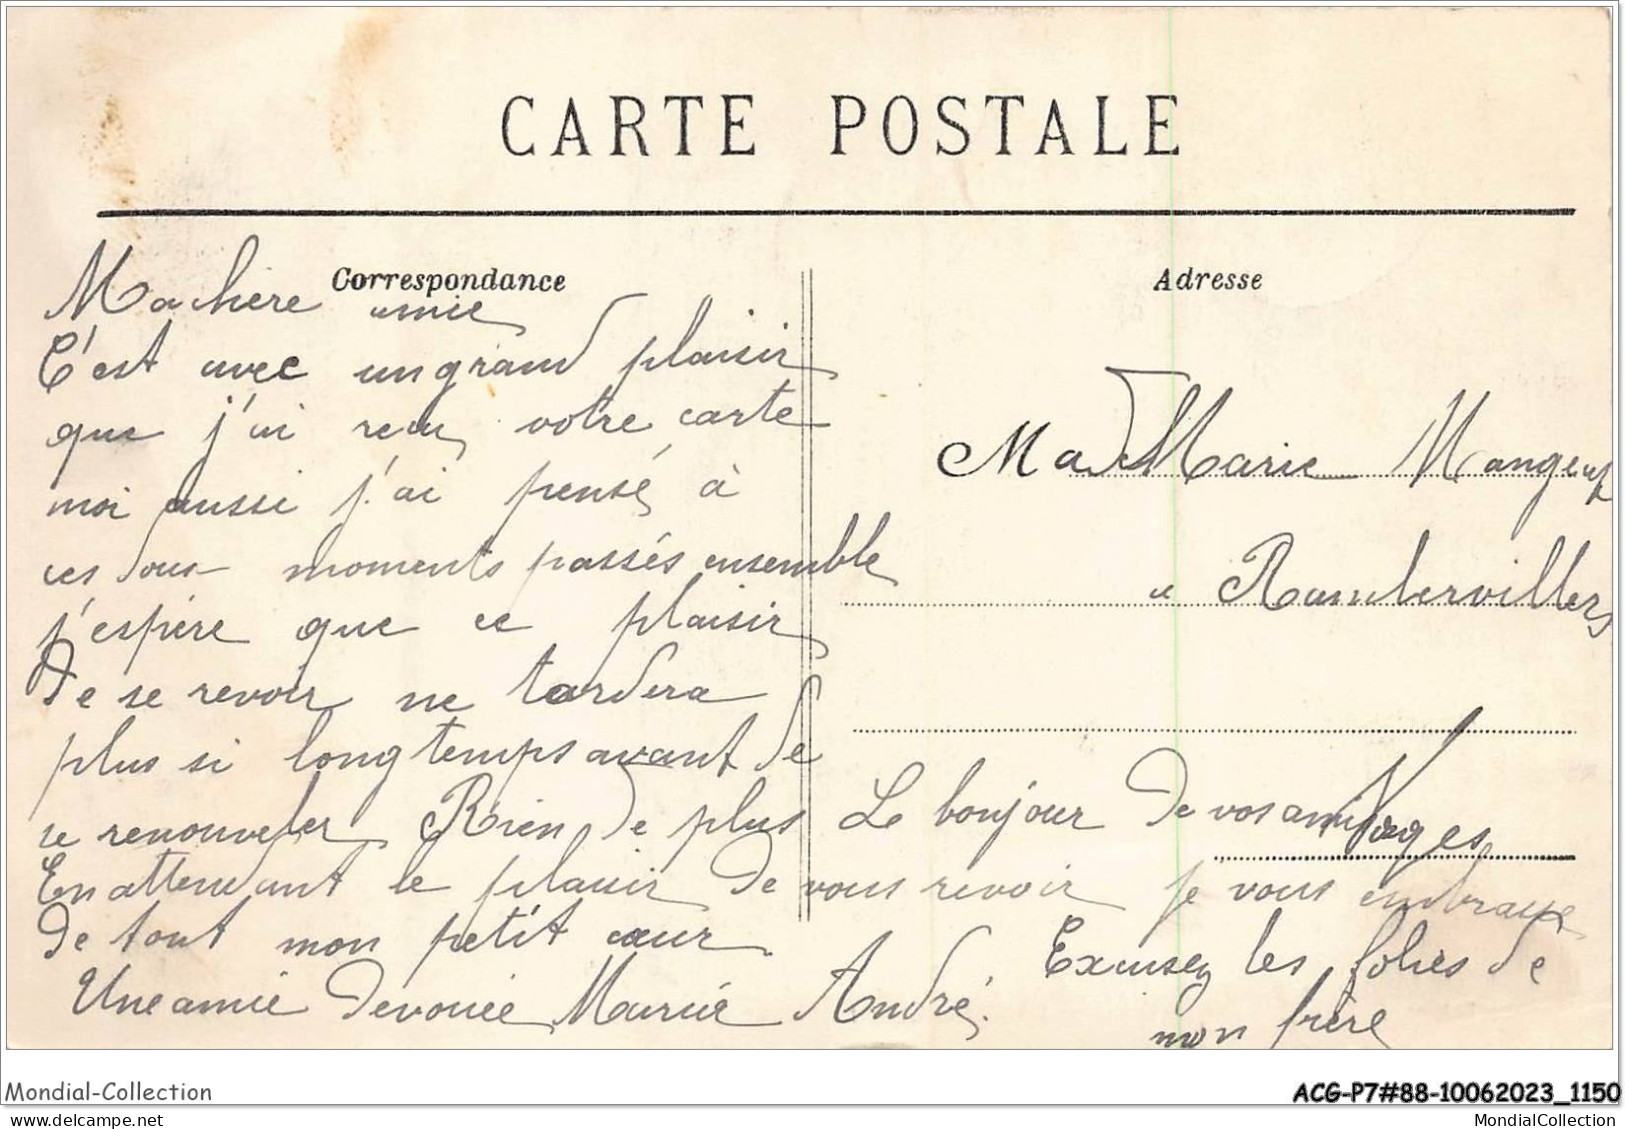 CARTE POSTALE
Correspondance
Adresse
Ma chère amie
C'est avec un grand plaisir
que j'ai reçu votre carte
moi aussi j'ai pensé à
ces dous moments passés ensemble
j'espère que ce plaisir
de se revoir ne tardera
plus si longtemps avant de
se renouveler Rien de plus
En attendant le plaisir de vous revoir je vous embrasse
de tout mon petit cœur
Une amie devouée Maurice André.
Made Marie
a Rambervillers
Vosges
Le bonjour de vos amis
Excusez les folies de
mon frère
Mondial-Collection
ACG-P7#88-10062023_1150
MondialCollection